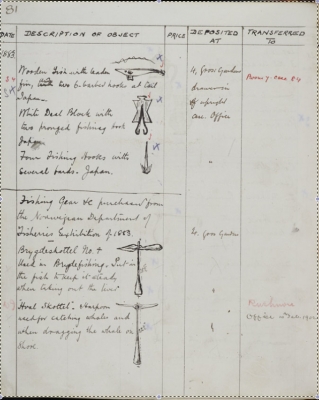 81
DATE DESCRIPTION OF OBJECT PRICE DEPOSITED AT TRANSFERRED TO
1883
Wooden Fish with leaden
fin, with two 6-barbed hooks at tail
Japan.
White Deal Block with
two pronged fishing hook
Japan
Four Fishing Hooks with
Several barbs. Japan.
4, Grove Garden
drawer in
of upright
case. Office
"
Fishing Gear &c purchased from
the Norwegian Department of
Fisheries Exhibition of 1883.
Brygdeskottel No. 4
Used in Brygdefishing. Put in
the fish to keep it steady
when taking out the liver
20, Grove Garden
"
Hval Skottel. Harpoon
used for catching whales and
when dragging the whale on
Shore.
"
Office